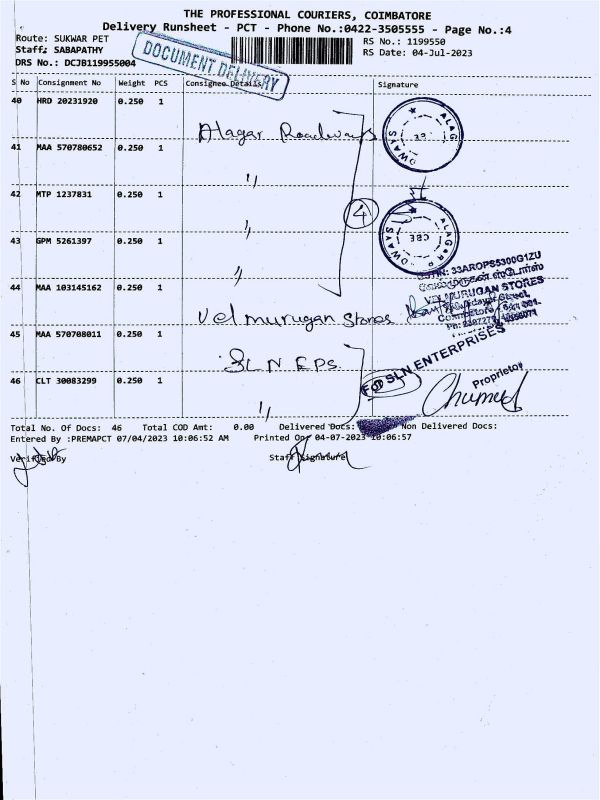 THE PROFESSIONAL COURIERS, COIMBATORE
Delivery Runsheet - PCT - Phone No.:0422-3505555 - Page No.:4
Route: SUKWAR PET
RS No.: 1199550
Staff: SABAPATHY
RS Date: 04-Jul-2023
DRS No.: DCJB119955004
DOCUMENT DELIVERY
S No Consignment No Weight PCS Consignee Details Signature
40 HRD 20231920 0.250 1
Alagar Roadways
41 MAA 570780652 0.250 1
"
42 MTP 1237831 0.250 1
"
4
43 GPM 5261397 0.250 1
"
44 MAA 103145162 0.250 1
Vel murugan Stores
45 MAA 570708011 0.250 1
SLN EPS.
46 CLT 30083299 0.250 1
"
CBE
GSTIN: 33AROPS5300G1ZU
வேல்முருகன் ஸ்டோர்ஸ்
VELMURUGAN STORES
For SLN ENTERPRISES
Proprietor
Total No. Of Docs: 46 Total COD Amt: 0.00 Delivered Docs: Non Delivered Docs:
Entered By :PREMAPCT 07/04/2023 10:06:52 AM Printed On 04-07-2023 10:06:57
Verified By Staff Signature